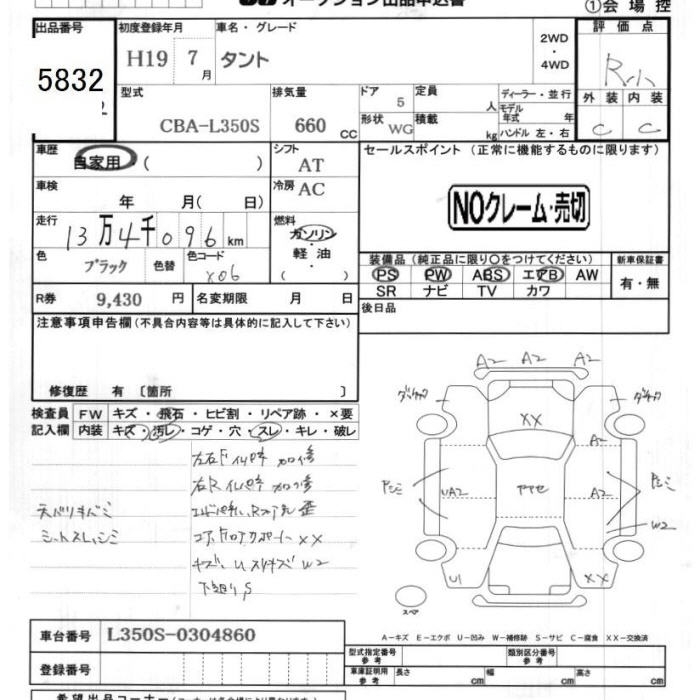 オークション出品申込書
①会場控
出品番号
5832
初度登録年月
H19 7月
車名・グレード
タント
2WD
・
4WD
評価点
R小
外装 内装
C C
型式
CBA-L350S
排気量
660 CC
ドア
5
形状
WG
定員
人
積載
kg
ディーラー・並行
モデル年式 年
ハンドル 左・右
車歴
自家用 ( )
シフト
AT
車検
年 月( 日)
冷房
AC
走行
13万4千096km
燃料
ガソリン
軽油
( ・ )
色
ブラック
色替
色コード
X06
R券 9,430 円
名変期限 月 日
セールスポイント (正常に機能するものに限ります)
NOクレーム・売切
装備品(純正品に限り〇をつけてください)
PS PW ABS エアB AW
SR ナビ TV カワ
新車保証書
有・無
後日品
注意事項申告欄(不具合内容等は具体的に記入して下さい)
修復歴 有 〔箇所 〕
検査員
記入欄
FW キズ・飛石・ヒビ割・リペア跡・×要
内装 キズ・汚レ・コゲ・穴・スレ・キレ・破レ
キズ、U スリキズ W2
下廻りS
A2 A2 A2
XX
A2
UA2
A2
W2
U1
XX
スペア
車台番号 L350S-0304860
登録番号
A-キズ E-エクボ U-凹み W-補修跡 S-サビ C-腐食 XX-交換済
型式指定番号
参考
類別区分番号
参考
車庫証明用
参考
長さ cm
幅 cm
高さ cm
希望出品コーナー